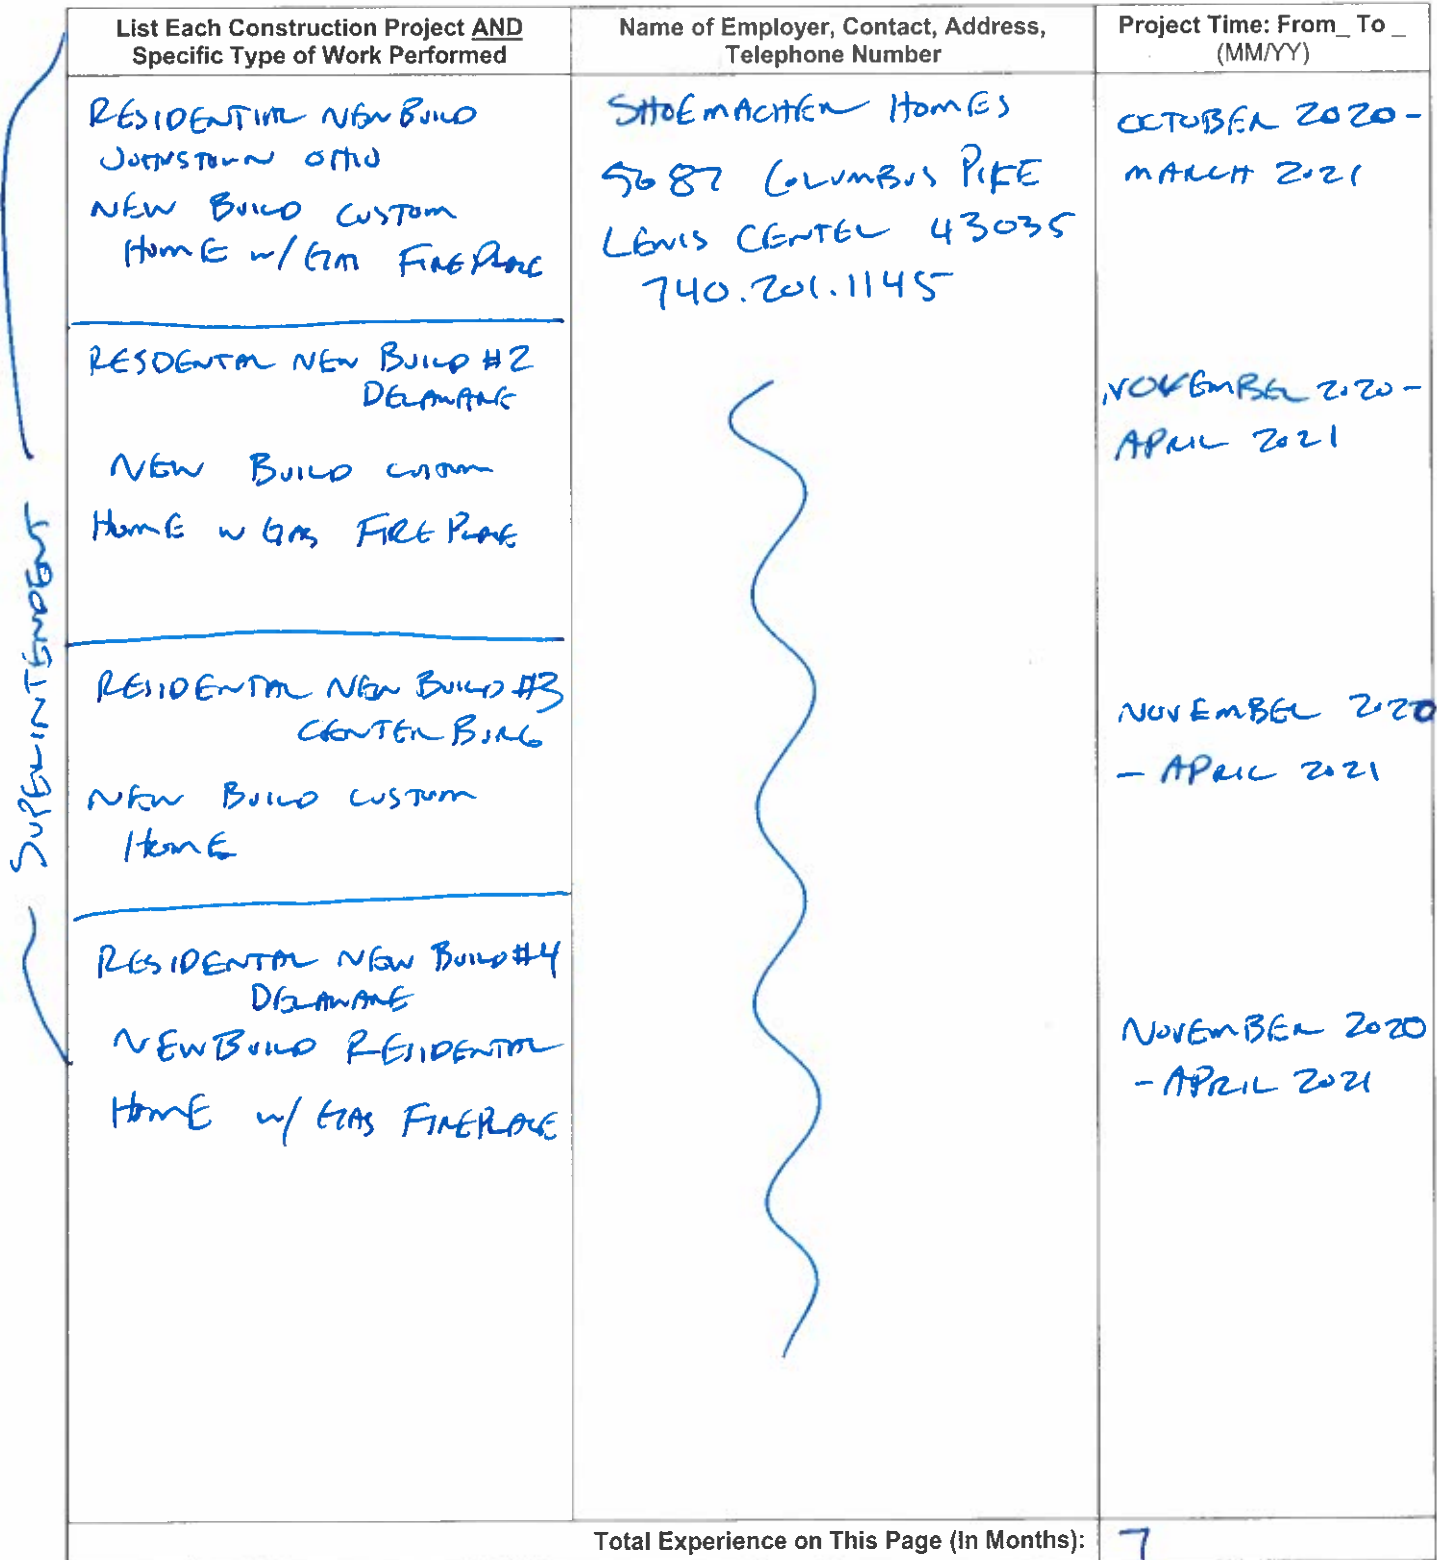 List Each Construction Project AND
Specific Type of Work Performed
Name of Employer, Contact, Address,
Telephone Number
Project Time: From_ To _
(MM/YY)
SUPERINTENDENT
RESIDENTIAL NEW BUILD
JOHNSTOWN OHIO
NEW BUILD CUSTOM
HOME w/ GAS FIREPLACE
SHOEMACHER HOMES
5687 COLUMBUS PIKE
LEWIS CENTER 43035
740.201.1145
OCTOBER 2020 -
MARCH 2021
RESDENTAL NEW BUILD #2
DELAWARE
NEW BUILD CUSTOM
HOME w GAS FIREPLACE
NOVEMBER 2020 -
APRIL 2021
RESIDENTAL NEW BUILD #3
CENTERBURG
NEW BUILD CUSTOM
HOME
NOVEMBER 2020
- APRIL 2021
RESIDENTAL NEW BUILD #4
DELAWARE
NEW BUILD RESIDENTAL
HOME w/ GAS FIREPLACE
NOVEMBER 2020
- APRIL 2021
Total Experience on This Page (In Months):
7